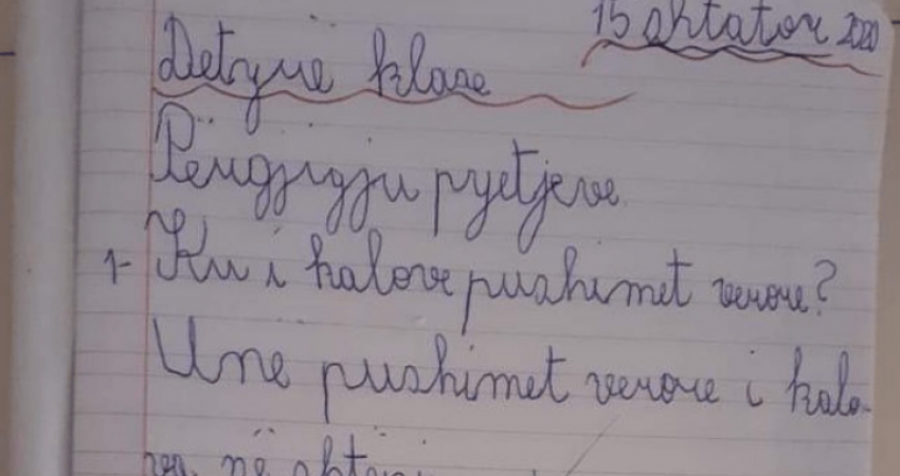 15 shtator 2020
Detyrë klase
Përgjigju pyetjeve.
1- Ku i kalove pushimet verore?
Unë pushimet verore i kalo-
va në shtëpi